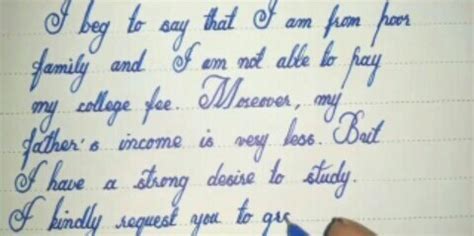 I beg to say that I am from poor
family and I am not able to pay
my college fee. Moreover, my
father's income is very less. But
I have a strong desire to study.
I kindly request you to gra